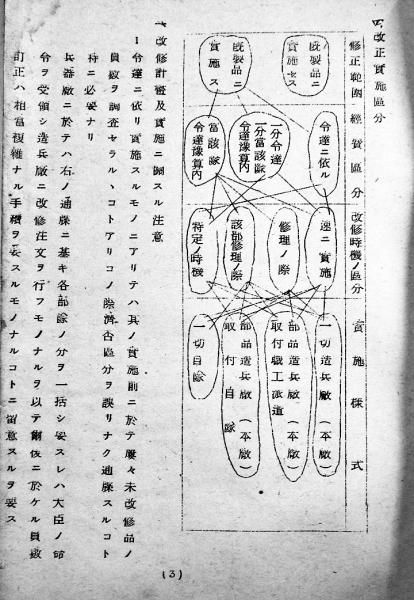 四、改正實施區分
修正範圍
經費區分
改修時機ノ區分
實施樣式
既製品ニ實施セス
既製品ニ實施ス
令達ニ依ル
一分令達
一分當該隊
令達豫算内
當該隊
令達豫算内
速ニ實施
修理ノ際
該部修理ノ際
特定ノ時機
一切造兵廠(本廠)
部品造兵廠(本廠)
取付職工派遣
部品造兵廠(本廠)
取付自隊
一切自隊
改修計畫及實施ニ關スル注意
1 令達ニ依リ實施スルモノニアリテハ其ノ實施前ニ於テ屢々未改修品ノ
員數ヲ調査セラルヽコトアリコノ際濟否區分ヲ誤リナク通牒スルコト
特ニ必要ナリ
兵器廠ニ於テハ右ノ通牒ニ基キ各部隊ノ分ヲ一括シ要スレハ大臣ノ命
令ヲ受領シ造兵廠ニ改修注文ヲ行フモノナルヲ以テ爾後ニ於ケル員數
訂正ハ相當複雜ナル手續ヲ要スルモノナルコトニ留意スルヲ要ス
(3)